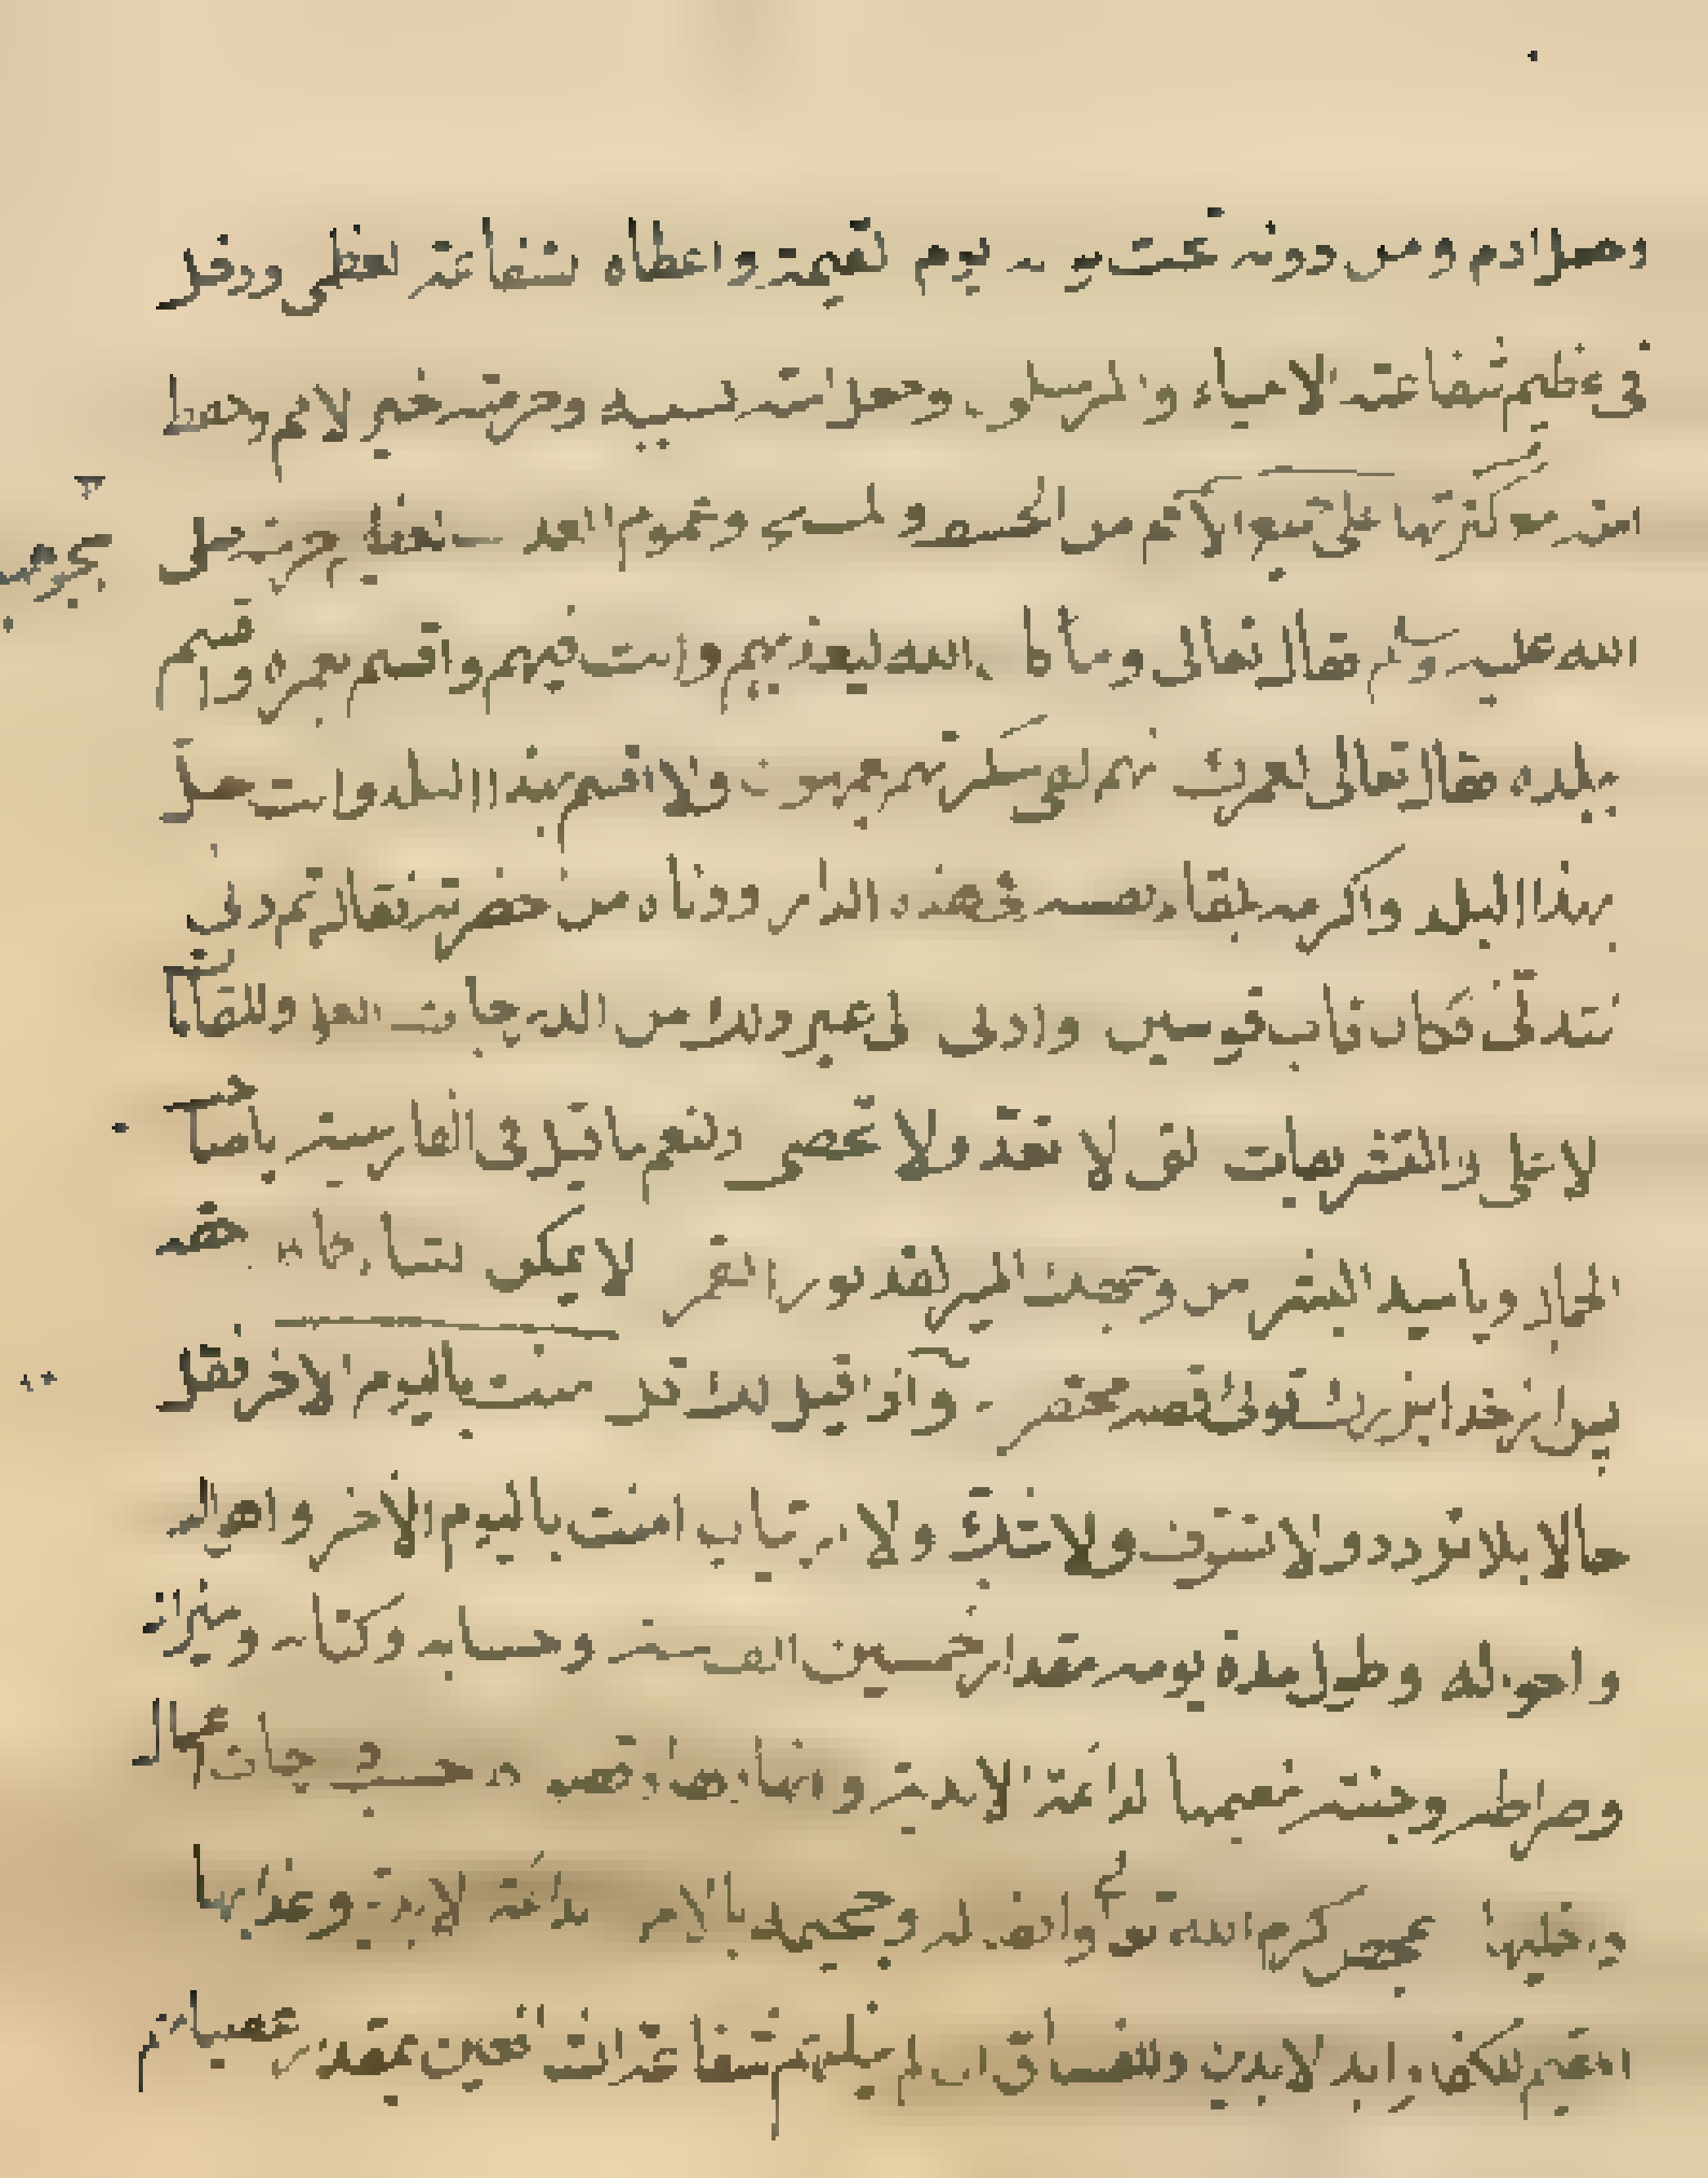 وجعل ادم ومن دونه تحت يوم القيمة واعطاه شفاعة العظمى ودخل
في عظيم شفاعته الانبياء والمرسلون وجعل امته نسبيه وحرمته خير الامم وحفظ
امته مع كثرتها على تنوع الاثم من الخسف والمسخ وعموم العذاب بعناية حرمته صلى
الله عليه وسلم فقال تعالى وما كان الله ليعذبهم وانت فيهم واقسم بعمره واقسم
ببلده فقال تعالى لعمرك انهم لفي سكرتهم يعمهون ولا اقسم بهذا البلد وانت حل
بهذا البلد واكرمه بلقاء نفسه في هذه الدار ودناه من حضرته فقال ثم دنى
فتدلى فكان قاب قوسين او ادنى الى غير ذلك من الدرجات العلى والمقامات
الاعلى والتشريفات التي لا تعد ولا تحصى ولنعم ما قيل في الفارسية يا صاحب
الجمال ويا سيد البشر من وجهك المنير لقد نور القمر لا يمكن الثناء كما حقه
پس از خدا بزرگ توئى قصه مختصر واذا قيل لك هل امنت باليوم الاخر فقل
حالا بلا تردد ولا توقف ولا شك ولا ارتياب امنت باليوم الاخر واهواله
واحواله وطول مدة يومه مقدار خمسين الف سنة وحسابه وكتابه وميزانه
وصراطه وجنته نعيمها الدائمة الابدية وانهارها وقصورها حسب درجات اعمال
داخليها بمحض كرم الله تعالى وافضاله وجحيمه بالامر الدائمة الابدية وعذابها
المقيم للكفار ابد الابدين وللفساق ان لم ينلهم شفاعة الشافعين بمقدار عصيانهم